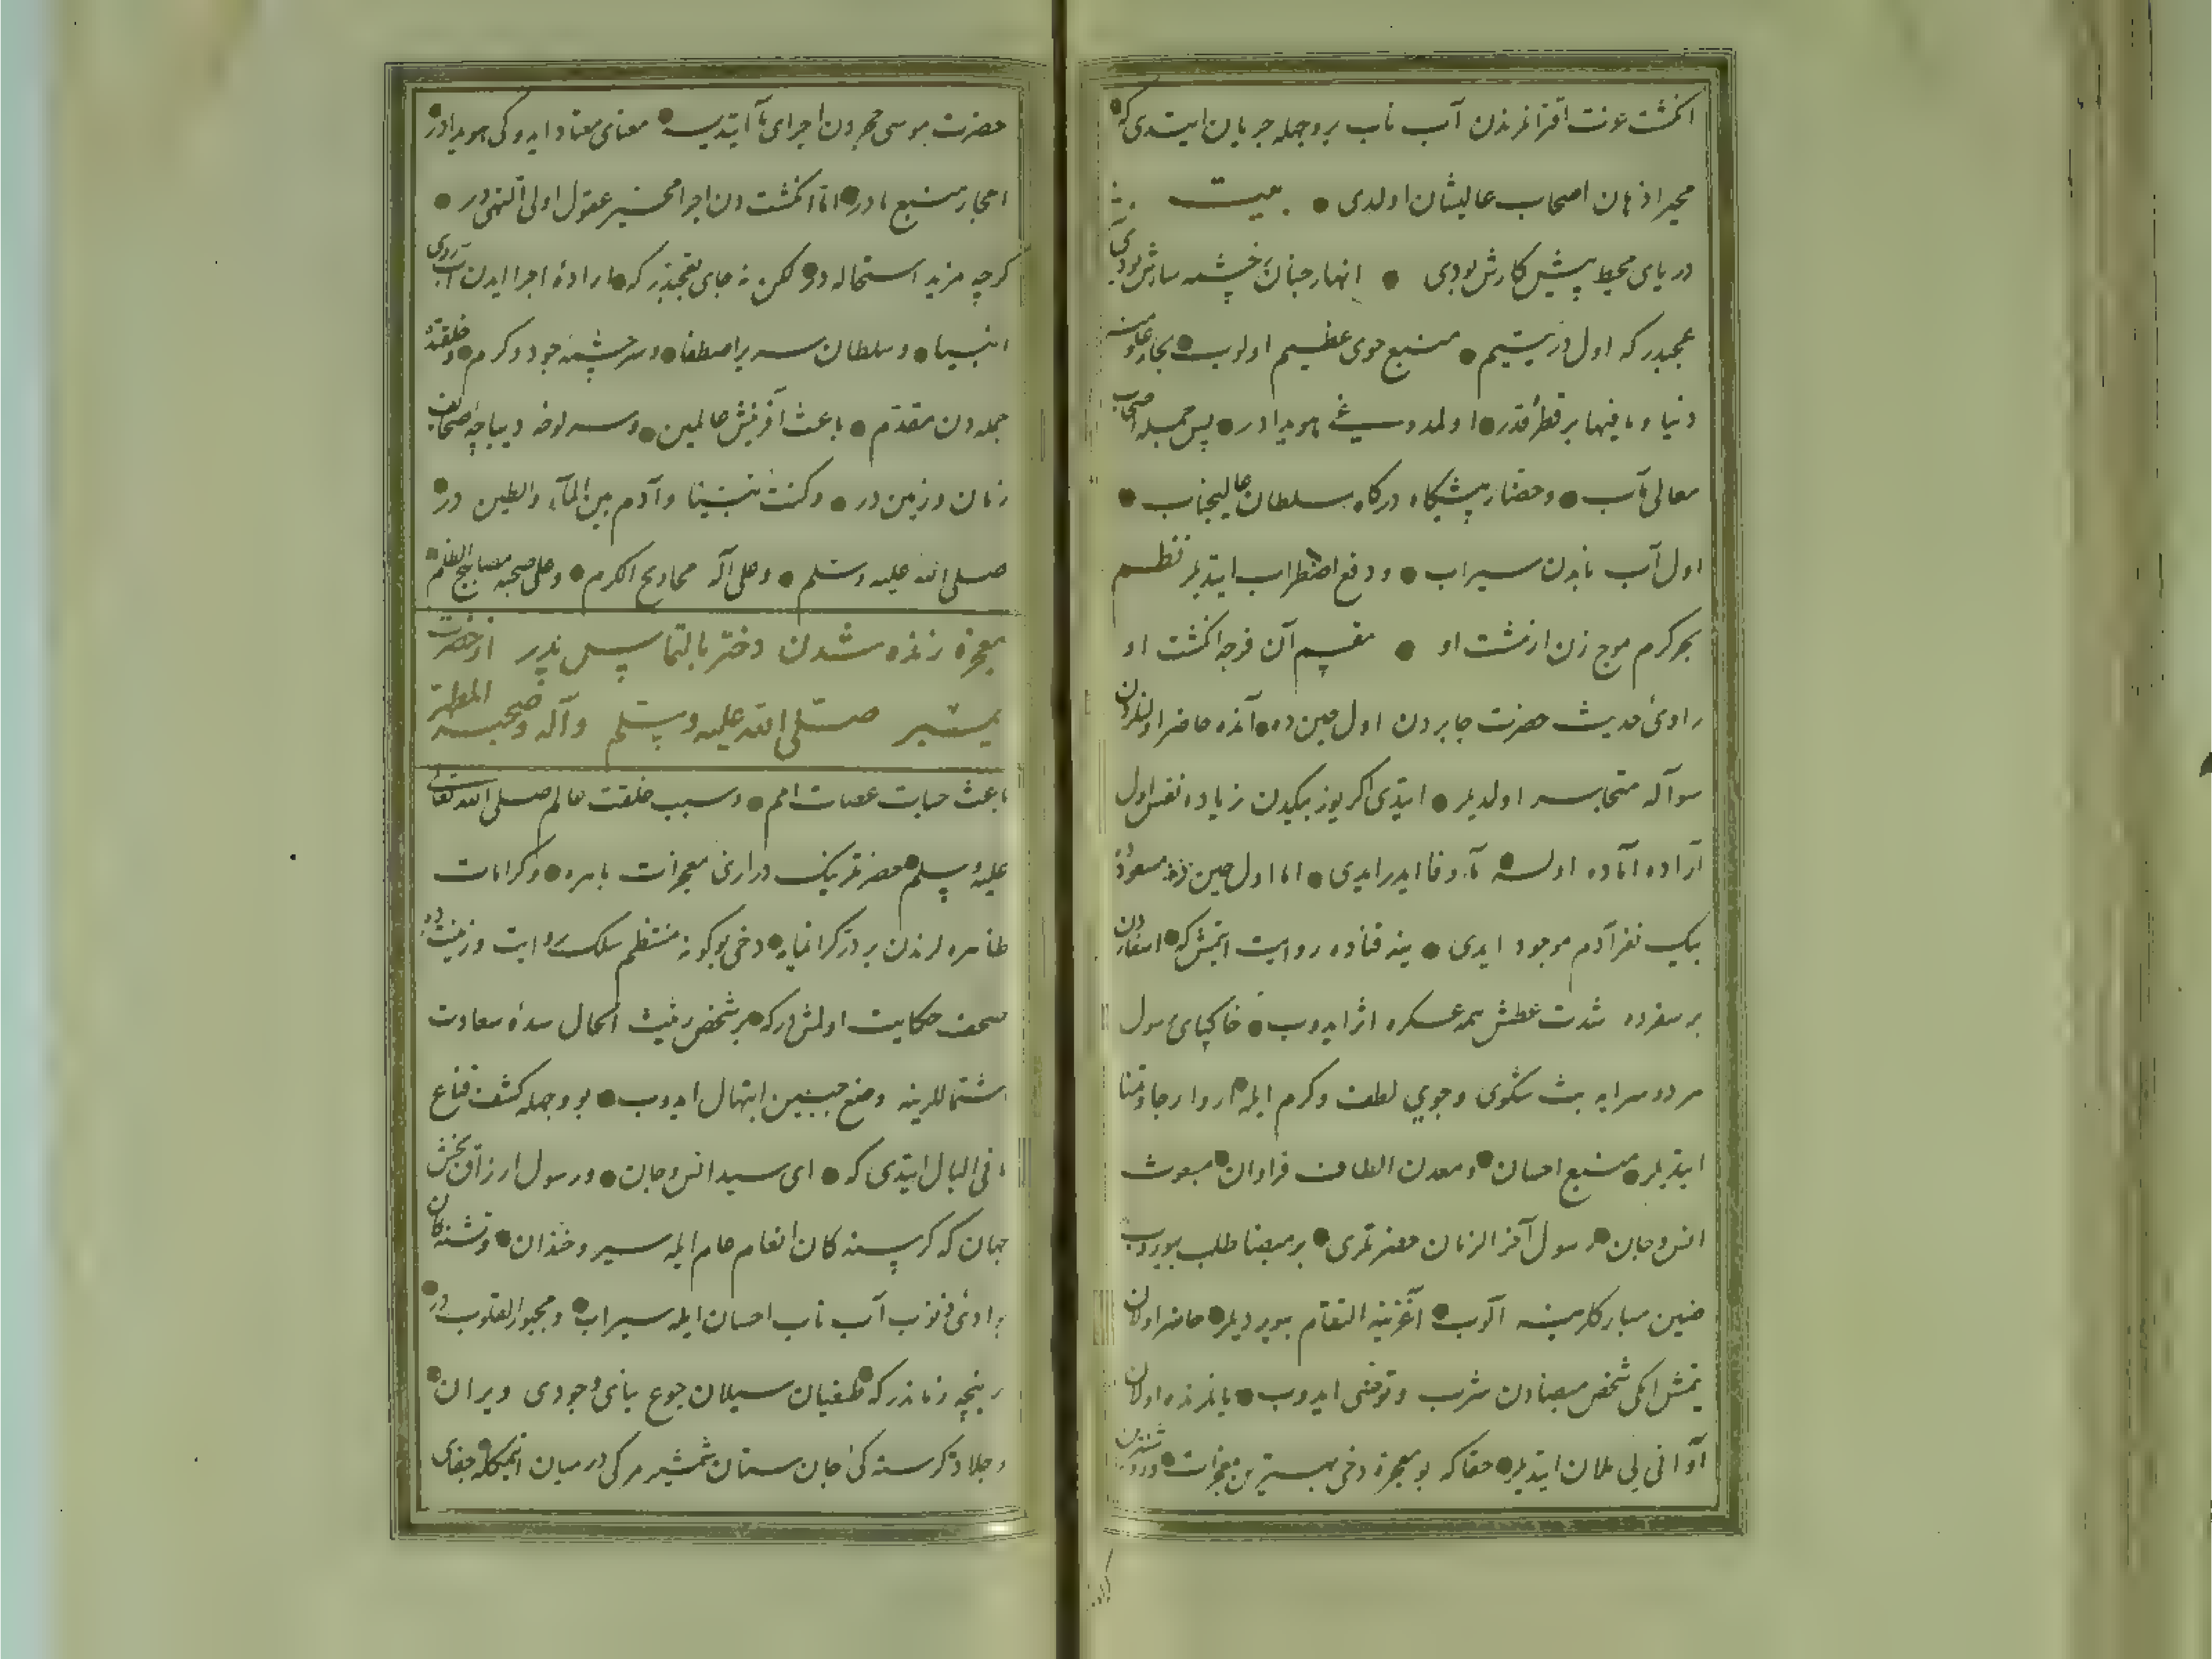 انكشت عزت اقترانلرندن آب ناب بر وجهله جريان ايتدى كه
محير اذهان اصحاب عاليشان اولدى بيت
درياى محيط پيش كارش بودى انهار جنان چشمه سارش بودى
عجبدر كه اول در يتيم منبع جوى عظيم اولوب بحار
دنيا و مافيها بر قطره قدر اولمدوغى هويدادر پس جمله اصحاب
معالى مآب و حضار پيشكاه دركاه سلطان عاليجناب
اول آب نابدن سيراب و دفع اضطراب ايتديلر نظم
بحر كرم موج زن از مشت او مقسم آن فرجه انكشت او
راوئ حديث حضرت جابردن اول حين ده آنده حاضر اولنلردن
سوآله متجاسر اولديلر ايتدى اكر يوز بيكدن زياده نفس اول
آراده آماده اولسه وفا ايدر ايدى اما اول حين
بيك نفر آدم موجود ايدى ينه قتاده روايت ايتمش كه اسفاردن
بر سفرده شدت عطش همه عسكره اثر ايدوب خاكپاى رسول
هر دو سرايه بث شكوى و جوى لطف و كرم ايله اروا رجا و تمنا
ايتديلر منبع احسان و معدن الطاف فراوان مبعوث
انس و جان رسول آخر الزمان حضرتلرى بر ميضا طلب بيوروب
مباركلرينه آلوب آغزينه التقام بيورديلر حاضر اولان
يتمش ايكى شخص ميضادن شرب و توضى ايدوب يانلرنده اولان
آوانى يى ملآن ايتديلر حقا كه بو معجزه دخى بهترين معجزات
حضرت موسى حجردن اجراى ما ايتديسه معناى معتاد ايدوكى هويدادر
احجار منبع مادر اما انكشت دن اجرا محير عقول اولى النهى در
كرچه مزيد استحاله در لكن نه جاى تعجبدر كه ما راده اجرا ايدن آب روى
انبيا و سلطان سرير اصطفا و سر چشمه جود و كرم و خلقتده
جمله دن مقدم باعث آفرينش عالمين و سر لوحه ديباچه صحائف
زمان و زمين در و كنت نبيا و آدم بين المآء والطين در
صلى الله عليه وسلم و على آله مجاديح الكرم و على صحبه مصابيح الظلم
معجزه زنده شدن دختر بالتماس پدر از حضرت
بشير صلى الله عليه وسلم وآله و صحبه المطهر
باعث حيات عصات امم و سبب خلقت عالم صلى الله تعالى
عليه وسلم حضرتلرينك درارئ معجزات باهره و كرامات
ظاهره لرندن بر در كرانمايه دخى بو كونه منتظم سلك روايت و زينت ده
صحف حكايت اولمش در كه بر شخص رثيث الحال سده سعادت
اشتماللرينه وضع جبين ابتهال ايدوب بو وجهله كشف قناع
مافى البال ايتدى كه اى سيد انس و جان و رسول ارزاق بخش
جهان كه كرسنه كان انعام عام ايله سير و خندان و تشنه كان
وادئ ذنوب آب ناب احسان ايله سيراب و مجبور القلوب در
بر نيچه زماندر كه طغيان سيلان جوع بناى وجودى ويران
و جلاد كرسنه كى جان ستان شمشير مركى در ميان ايتمكله جفاى